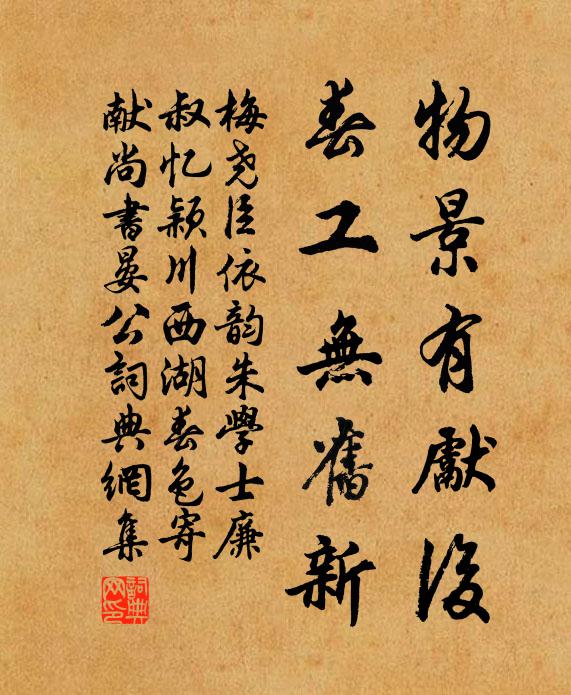 物景有獻後
春工無舊新
梅尧臣依韵朱學士廉
叔忆颖川西湖春色寄
献尚書晏公詞典網集
詞典
网印